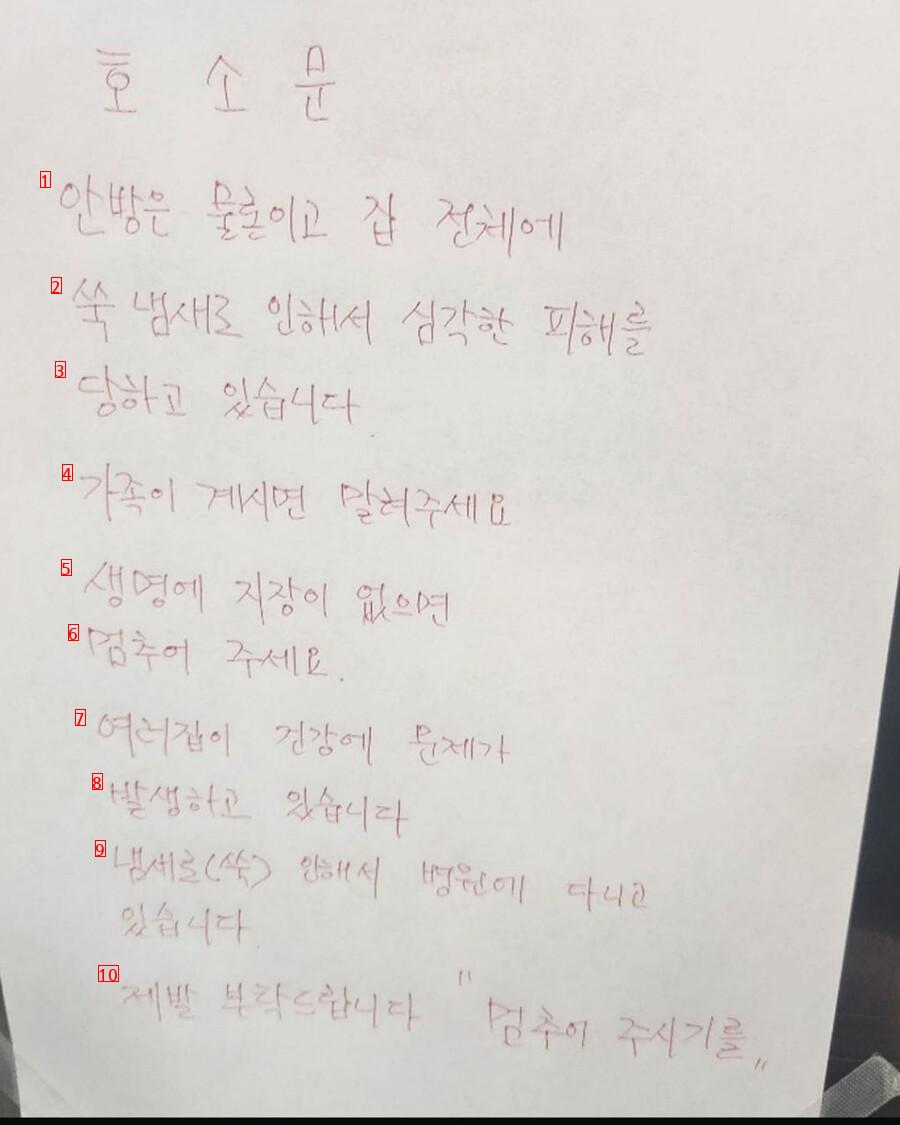 호 소 문
1 안방은 물론이고 집 전체에
2 쑥 냄새로 인해서 심각한 피해를
3 당하고 있습니다.
4 가족이 계시면 말려주세요
5 생명에 지장이 없으면
6 멈추어 주세요.
7 여러집이 건강에 문제가
8 발생하고 있습니다
9 냄새로(쑥) 인해서 병원에 다니고
있습니다.
10 제발 부탁드립니다 "멈추어 주시기를"